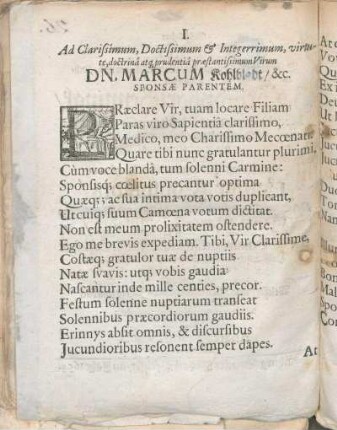 I.
Ad Clarissimum, Doctissimum & Integerrimum, virtu-
te, doctrinâ atq; prudentiâ præstantissimum Virum
DN. MARCUM Kohlbladt / &c.
SPONSÆ PARENTEM.
PRæclare Vir, tuam locare Filiam
Paras viro Sapientiâ clarissimo,
Medico, meo Charissimo Mecœnati:
Quare tibi nunc gratulantur plurimi,
Cùm voce blandâ, tum solenni Carmine:
Sponsisq; cœlitus precantur optima
Quæq; ac sua intima vota votis duplicant,
Ut cuiq; suum Camœna votum dictitat.
Non est meum prolixitatem ostendere.
Ego me brevis expediam. Tibi, Vir Clarissime,
Costæq; gratulor tuæ de nuptiis
Natæ svavis: utq; vobis gaudia
Nascantur inde mille centies, precor.
Festum solenne nuptiarum transeat
Solennibus præcordiorum gaudiis.
Erinnys absit omnis, & discursibus
Jucundioribus resonent semper dapes.
At